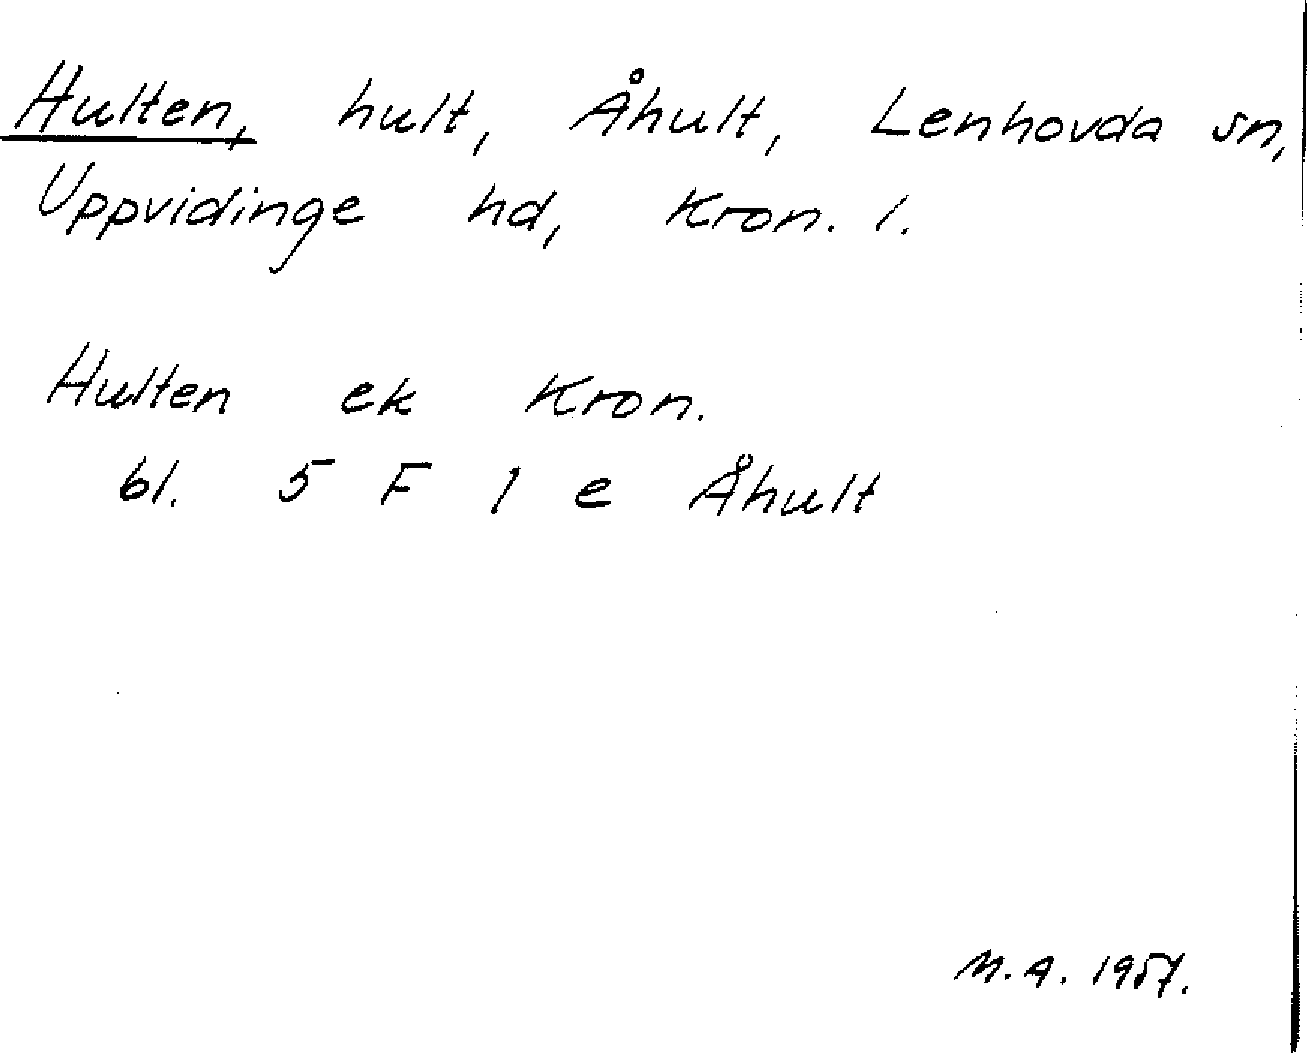 Hulten, hult, Åhult, Lenhovda sn,
Uppvidinge hd, Kron. l.
Hulten ek Kron.
bl. 5 F 1 e Åhult
M.A. 1957.